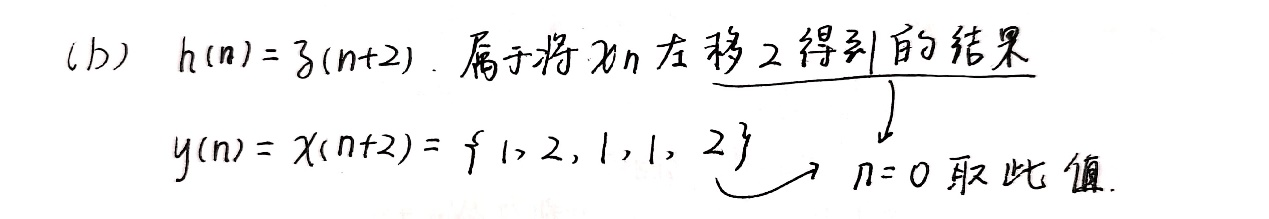 (b) h(n)=δ(n+2). 属于将xn左移2得到的结果
y(n)=x(n+2)={1,2,1,1,2} n=0取此值.